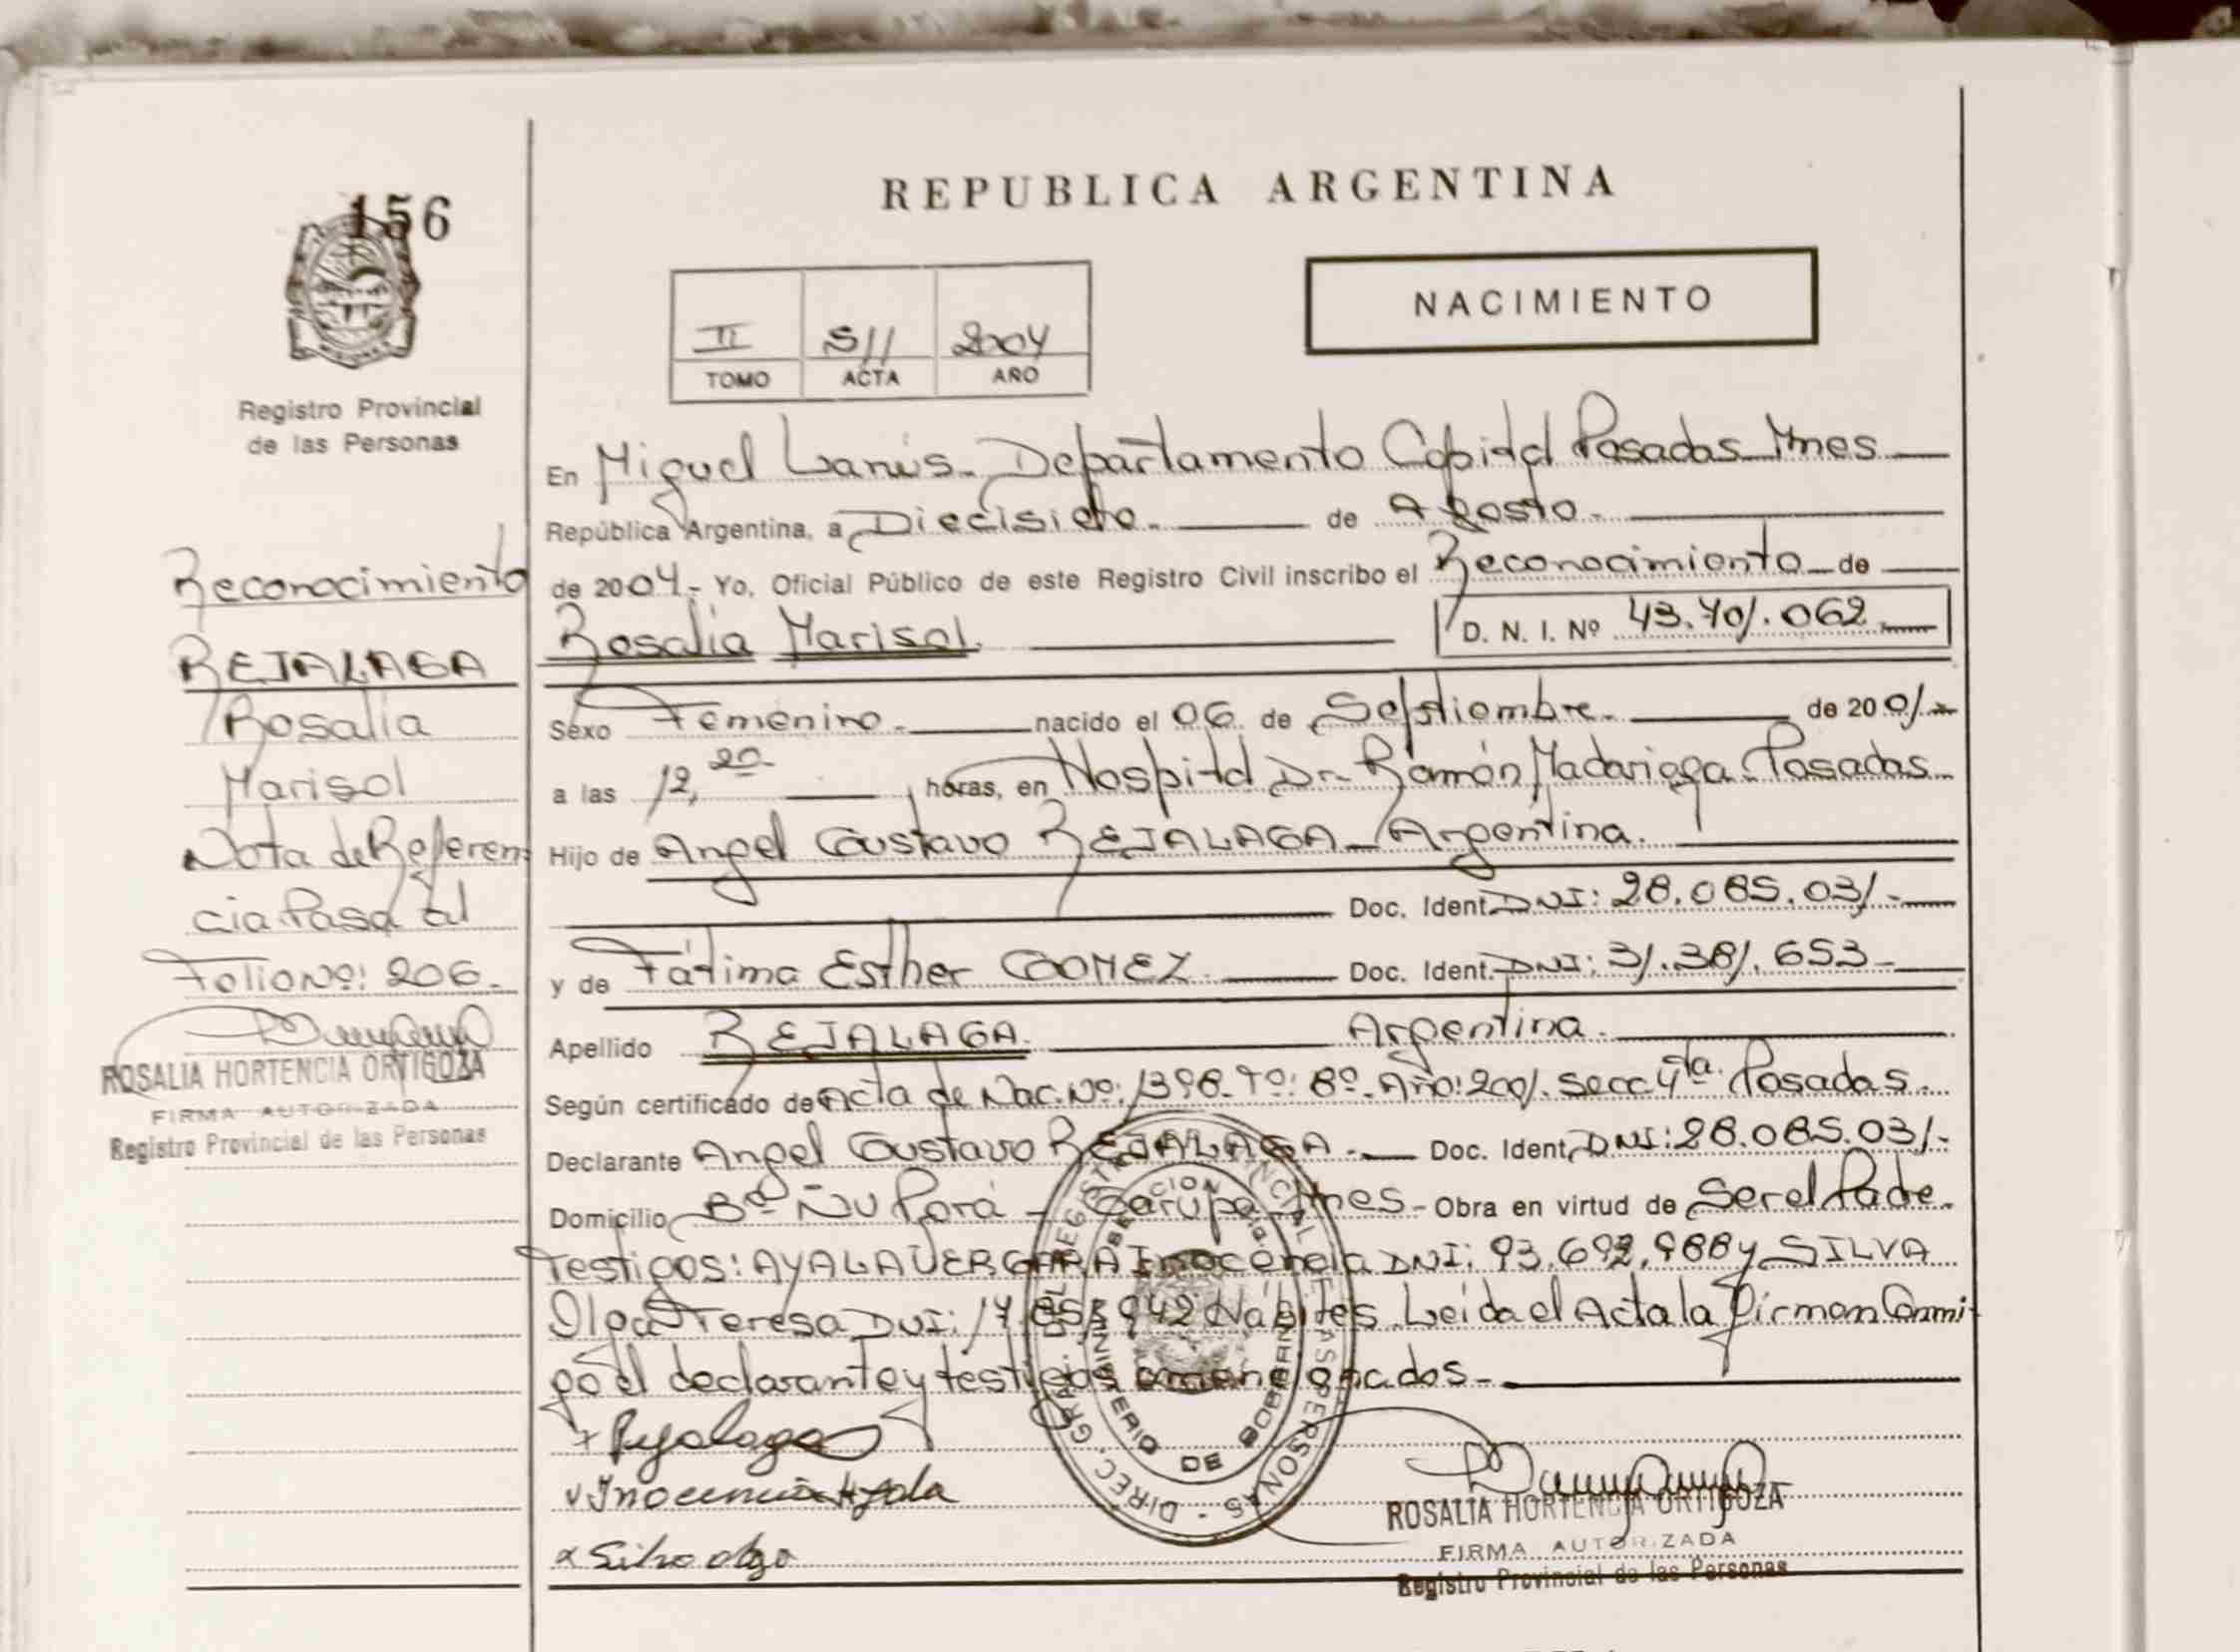 156
REPUBLICA ARGENTINA
NACIMIENTO
II S11 2004
TOMO ACTA AÑO
Registro Provincial
de las Personas
En Miguel Lanús - Departamento Capital Posadas Mnes
República Argentina, a Diecisiete. de Agosto.
de 2004.- Yo, Oficial Público de este Registro Civil inscribo el Reconocimiento de
Rosalia Marisol. D. N. I. Nº 43.701.062
Sexo Femenino. nacido el 06 de Septiembre. de 2001
a las 12,20 horas, en Hospital Dr. Ramón Madariaga - Posadas
Hijo de Angel Gustavo REJALAGA - Argentina.
Doc. Ident. DNI: 28.085.031.-
y de Fátima Esther GOMEZ. Doc. Ident. DNI: 31.381.653-
Apellido REJALAGA. Argentina.
Según certificado de Acta de Nac. Nº: 1398. Tº: 8º. Año: 2001. Secc 4ta. Posadas.
Declarante Angel Gustavo REJALAGA.- Doc. Ident. DNI: 28.085.031.-
Domicilio Bº Ñu Porá - Garupá Mnes - Obra en virtud de Ser el Padre.
Testigos: AYALA VERGARA Inocencia DNI: 93.692.988 y SILVA
Olga Teresa DNI: 942 Hábiles. Leída el Acta la firman Conmi
go el declarante y testigos mencionados.-
Rejalaga
Inocencia Ayala
Silva olga
Reconocimiento
REJALAGA
Rosalia
Marisol
Nota de Referen
cia Pasa al
Folio Nº: 206.
ROSALIA HORTENCIA ORTIGOZA
FIRMA AUTORIZADA
Registro Provincial de las Personas
DIREC. GRAL. DEL REGISTRO PROVINCIAL DE LAS PERSONAS
MINISTERIO DE GOBIERNO
ROSALIA HORTENCIA ORTIGOZA
FIRMA AUTORIZADA
Registro Provincial de las Personas